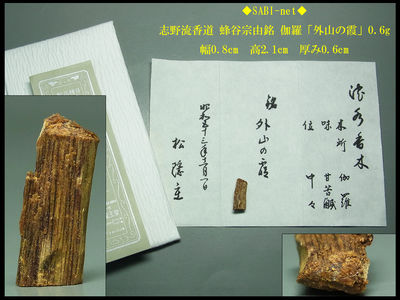 ◆SABI-net◆
志野流香道 蜂谷宗由銘 伽羅「外山の霞」0.6g
幅0.8cm 高2.1cm 厚み0.6cm
香木
木所 伽羅
味 甘苦鹹
位 中々
銘 外山の霞
昭和五十三年十二月一日
松隠主